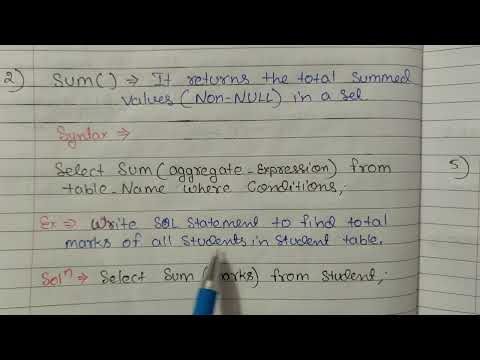 2) Sum() ⇒ It returns the total summed
values (Non-NULL) in a set
Syntax ⇒
Select Sum(aggregate_Expression) from
table_Name where Conditions;
5)
Ex ⇒ Write SQL Statement to find total
marks of all students in student table.
Solⁿ ⇒ Select Sum(marks) from student;